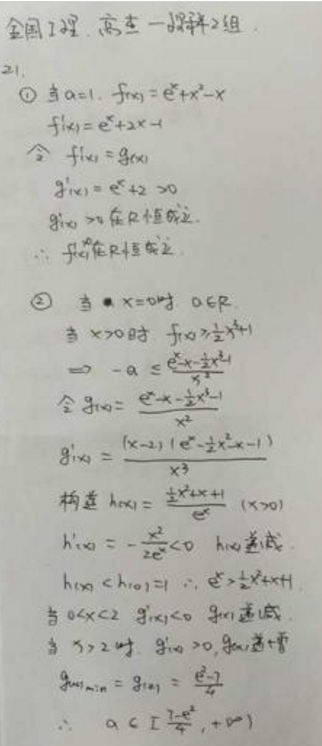 全国I理.高杰一课群2组.
21.
① 当a=1. f(x)=e^x+x²-x
f'(x)=e^x+2x-1
令 f'(x)=g(x)
g'(x)=e^x+2>0
g'(x)>0在R恒成立.
∴ f'(x)在R恒成立
② 当 x=0时. a∈R.
当 x>0时 f(x)≥½x³+1
⇒ -a ≤ (e^x-x-½x³-1)/x²
令g(x)= (e^x-x-½x³-1)/x²
g'(x)= (x-2)(e^x-½x²-x-1)/x³
构造 h(x)= (½x²+x+1)/e^x (x>0)
h'(x)= -x²/2e^x<0 h(x)递减.
h(x)<h(0)=1 ∴ e^x>½x²+x+1.
当 0<x<2 g'(x)<0 g(x)递减.
当 x>2时. g'(x)>0, g(x)递增
g(x)min=g(2)= (e²-7)/4
∴ a∈[(7-e²)/4,+∞)